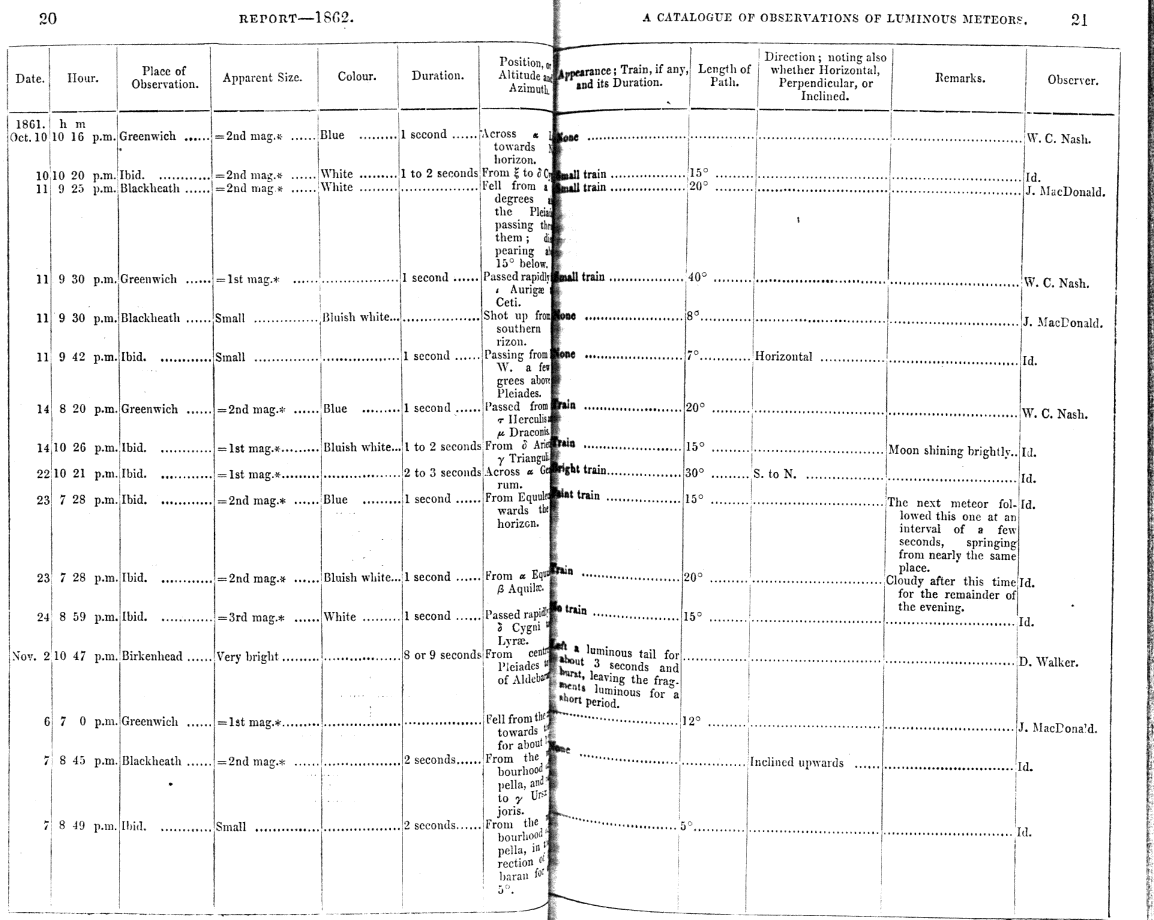 20 REPORT—1862.
A CATALOGUE OF OBSERVATIONS OF LUMINOUS METEORS. 21
Date. Hour. Place of Observation. Apparent Size. Colour. Duration. Position, or Altitude and Azimuth. Appearance; Train, if any, and its Duration. Length of Path. Direction; noting also whether Horizontal, Perpendicular, or Inclined. Remarks. Observer.
1861. h m
Oct. 10 10 16 p.m. Greenwich =2nd mag.* Blue 1 second Across α None W. C. Nash.
towards
horizon.
10 10 20 p.m. Ibid. =2nd mag.* White 1 to 2 seconds From ξ to δ Small train 15° Id.
11 9 25 p.m. Blackheath =2nd mag.* White Fell from a Small train 20° J. MacDonald.
degrees
the
passing
them;
pearing
15° below.
11 9 30 p.m. Greenwich =1st mag.* 1 second Passed rapidly Small train 40° W. C. Nash.
ι Aurigæ
Ceti.
11 9 30 p.m. Blackheath Small Bluish white... Shot up from None 8° J. MacDonald.
southern
rizon.
11 9 42 p.m. Ibid. Small 1 second Passing from None 7° Horizontal Id.
W. a few
grees above
Pleiades.
14 8 20 p.m. Greenwich =2nd mag.* Blue 1 second Passed from Train 20° W. C. Nash.
τ Herculis
μ Draconis.
14 10 26 p.m. Ibid. =1st mag.* Bluish white... 1 to 2 seconds From δ Train 15° Moon shining brightly.. Id.
γ
22 10 21 p.m. Ibid. =1st mag.* 2 to 3 seconds Across α Bright train 30° S. to N. Id.
rum.
23 7 28 p.m. Ibid. =2nd mag.* Blue 1 second From Faint train 15° The next meteor fol- Id.
wards the lowed this one at an
horizon. interval of a few
seconds, springing
from nearly the same
place.
23 7 28 p.m. Ibid. =2nd mag.* Bluish white... 1 second From α Train 20° Cloudy after this time Id.
β Aquilæ. for the remainder of
the evening.
24 8 59 p.m. Ibid. =3rd mag.* White 1 second Passed No train 15° Id.
δ Cygni
Lyræ.
Nov. 2 10 47 p.m. Birkenhead Very bright 8 or 9 seconds From Left a luminous tail for D. Walker.
Pleiades about 3 seconds and
of burst, leaving the frag-
ments luminous for a
short period.
6 7 0 p.m. Greenwich =1st mag.* Fell from the 12° J. MacDona'd.
towards
for about
7 8 45 p.m. Blackheath =2nd mag.* 2 seconds From the None Inclined upwards Id.
bourhood
pella, and
to γ
joris.
7 8 49 p.m. Ibid. Small 2 seconds From the 5° Id.
bourhood
pella, in
rection of
baran for
5°.